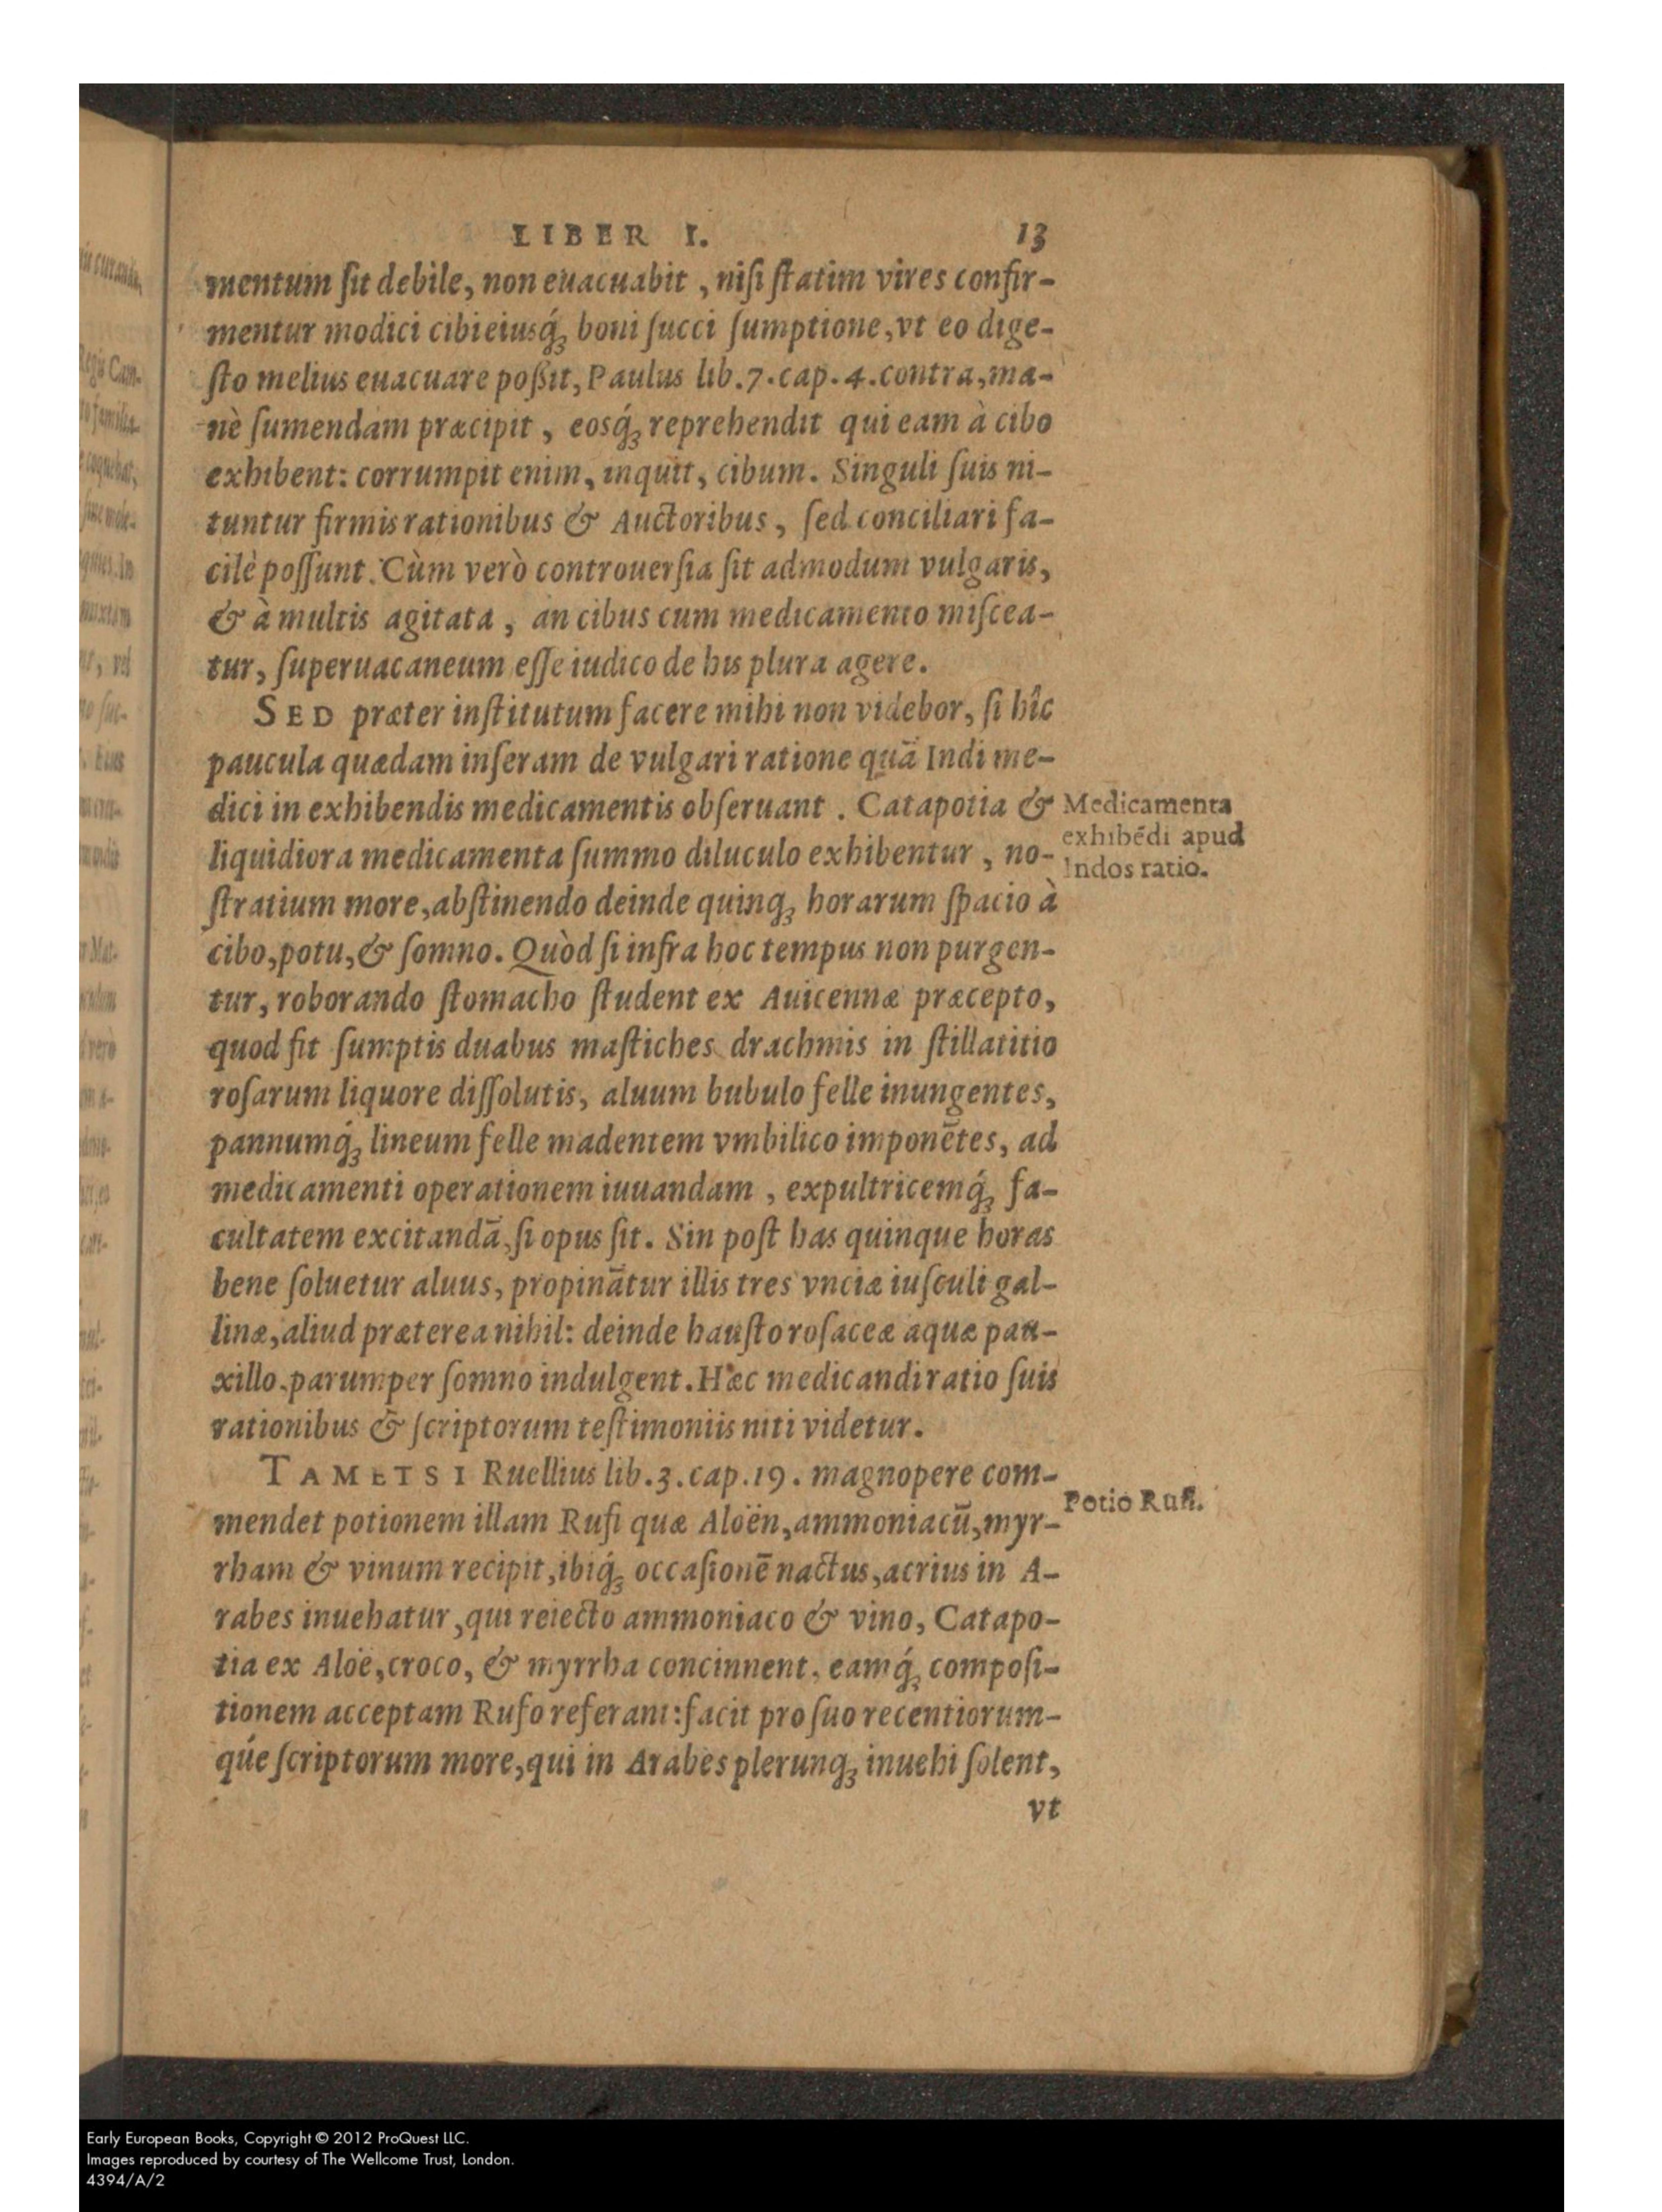 LIBER I. 13
mentum ſit debile, non euacuabit, niſi ſtatim vires confir-
mentur modici cibi eiusq́; boni ſucci ſumptione, vt eo dige-
ſto melius euacuare poßit, Paulus lib. 7. cap. 4. contra, ma-
nè ſumendam præcipit, eosq́; reprehendit qui eam à cibo
exhibent: corrumpit enim, inquit, cibum. Singuli ſuis ni-
tuntur firmis rationibus & Auctoribus, ſed conciliari fa-
cilè poſſunt. Cùm verò controuerſia ſit admodum vulgaris,
& à multis agitata, an cibus cum medicamento miſcea-
tur, ſuperuacaneum eſſe iudico de his plura agere.
SED præter inſtitutum facere mihi non videbor, ſi hîc
paucula quædam inſeram de vulgari ratione quā Indi me-
dici in exhibendis medicamentis obſeruant. Catapotia &
Medicamenta
exhibēdi apud
Indos ratio.
liquidiora medicamenta ſummo diluculo exhibentur, no-
ſtratium more, abſtinendo deinde quinq; horarum ſpacio à
cibo, potu, & ſomno. Quòd ſi infra hoc tempus non purgen-
tur, roborando ſtomacho ſtudent ex Auicennæ præcepto,
quod fit ſumptis duabus maſtiches drachmis in ſtillatitio
roſarum liquore diſſolutis, aluum bubulo felle inungentes,
pannumq́; lineum felle madentem vmbilico imponētes, ad
medicamenti operationem iuuandam, expultricemq́; fa-
cultatem excitandā, ſi opus ſit. Sin poſt has quinque horas
bene ſoluetur aluus, propinātur illis tres vnciæ iuſculi gal-
linæ, aliud præterea nihil: deinde hauſto roſaceæ aquæ pau-
xillo, parumper ſomno indulgent. Hæc medicandi ratio ſuis
rationibus & ſcriptorum teſtimoniis niti videtur.
TAMETSI Ruellius lib. 3. cap. 19. magnopere com-
Potio Rufi.
mendet potionem illam Rufi quæ Aloën, ammoniacū, myr-
rham & vinum recipit, ibiq́; occaſionē nactus, acrius in A-
rabes inuehatur, qui reiecto ammoniaco & vino, Catapo-
tia ex Aloë, croco, & myrrha concinnent, eamq́; compoſi-
tionem acceptam Rufo referant: facit pro ſuo recentiorum-
qúe ſcriptorum more, qui in Arabes plerunq; inuehi ſolent,
vt
Early European Books, Copyright © 2012 ProQuest LLC.
Images reproduced by courtesy of The Wellcome Trust, London.
4394/A/2